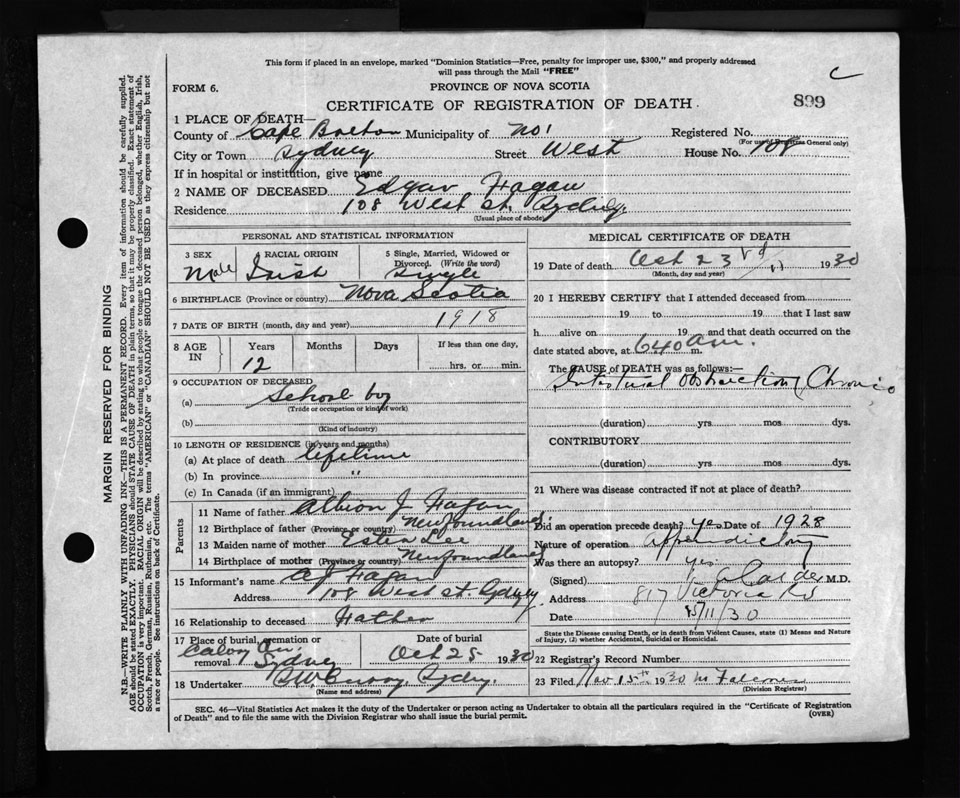 This form if placed in an envelope, marked "Dominion Statistics—Free, penalty for improper use, $300," and properly addressed
will pass through the Mail "FREE"
C
FORM 6.
PROVINCE OF NOVA SCOTIA
CERTIFICATE OF REGISTRATION OF DEATH.
899
1 PLACE OF DEATH—
County of Cape Breton Municipality of No 1 Registered No.
(For use of Registrar General only)
City or Town Sydney Street West House No. 108
If in hospital or institution, give name
2 NAME OF DECEASED Edgar Fagan
Residence 108 West St. Sydney.
(Usual place of abode)
PERSONAL AND STATISTICAL INFORMATION
3 SEX Male
RACIAL ORIGIN Irish
5 Single, Married, Widowed or Divorced. (Write the word) Single
6 BIRTHPLACE (Province or country) Nova Scotia
7 DATE OF BIRTH (month, day and year) 1918
8 AGE IN Years 12 Months Days If less than one day, hrs. or min.
9 OCCUPATION OF DECEASED
(a) School boy
(Trade or occupation or kind of work)
(b)
(Kind of industry)
10 LENGTH OF RESIDENCE (in years and months)
(a) At place of death lifetime
(b) In province "
(c) In Canada (if an immigrant)
Parents
11 Name of father Albion J Fagan
12 Birthplace of father (Province or country) Newfoundland
13 Maiden name of mother Lee
14 Birthplace of mother (Province or country) Newfoundland
15 Informant's name A J Fagan
Address 108 West St. Sydney
16 Relationship to deceased Father
17 Place of burial, cremation or removal Sydney
Date of burial Oct 25 1930
18 Undertaker Sydney.
(Name and address)
MEDICAL CERTIFICATE OF DEATH
19 Date of death Oct 23rd 1930
(Month, day and year)
20 I HEREBY CERTIFY that I attended deceased from
19 to 19 that I last saw
h alive on 19 and that death occurred on
date stated above, at 640 a.m.
The CAUSE of DEATH was as follows:—
Intestinal Obstruction (Chronic
(duration) yrs mos dys.
CONTRIBUTORY
(duration) yrs mos dys.
21 Where was disease contracted if not at place of death?
Did an operation precede death? Yes Date of 1928
Nature of operation Appendictomy
Was there an autopsy? Yes
(Signed) Calder M.D.
Address 817 Victoria Rd
Date 15/11/30
State the Disease causing Death, or in death from Violent Causes, state (1) Means and Nature of Injury, (2) whether Accidental, Suicidal or Homicidal. (See over)
22 Registrar's Record Number
23 Filed Nov 15th 1930
(Division Registrar)
SEC. 46—Vital Statistics Act makes it the duty of the Undertaker or person acting as Undertaker to obtain all the particulars required in the "Certificate of Registration
of Death" and to file the same with the Division Registrar who shall issue the burial permit.
(OVER)
MARGIN RESERVED FOR BINDING
N.B.—WRITE PLAINLY WITH UNFADING INK—THIS IS A PERMANENT RECORD. Every item of information should be carefully supplied.
AGE should be stated EXACTLY. PHYSICIANS should STATE CAUSE OF DEATH in plain terms, so that it may be properly classified. Exact statement of
OCCUPATION is very important. RACIAL ORIGIN will be described by stating to what people or tongue the deceased person belonged, whether English, Irish,
Scotch, French, German, Russian, Ruthenian, etc. The terms "AMERICAN" or "CANADIAN" SHOULD NOT BE USED as they express citizenship but not
a race or people. See instructions on back of Certificate.